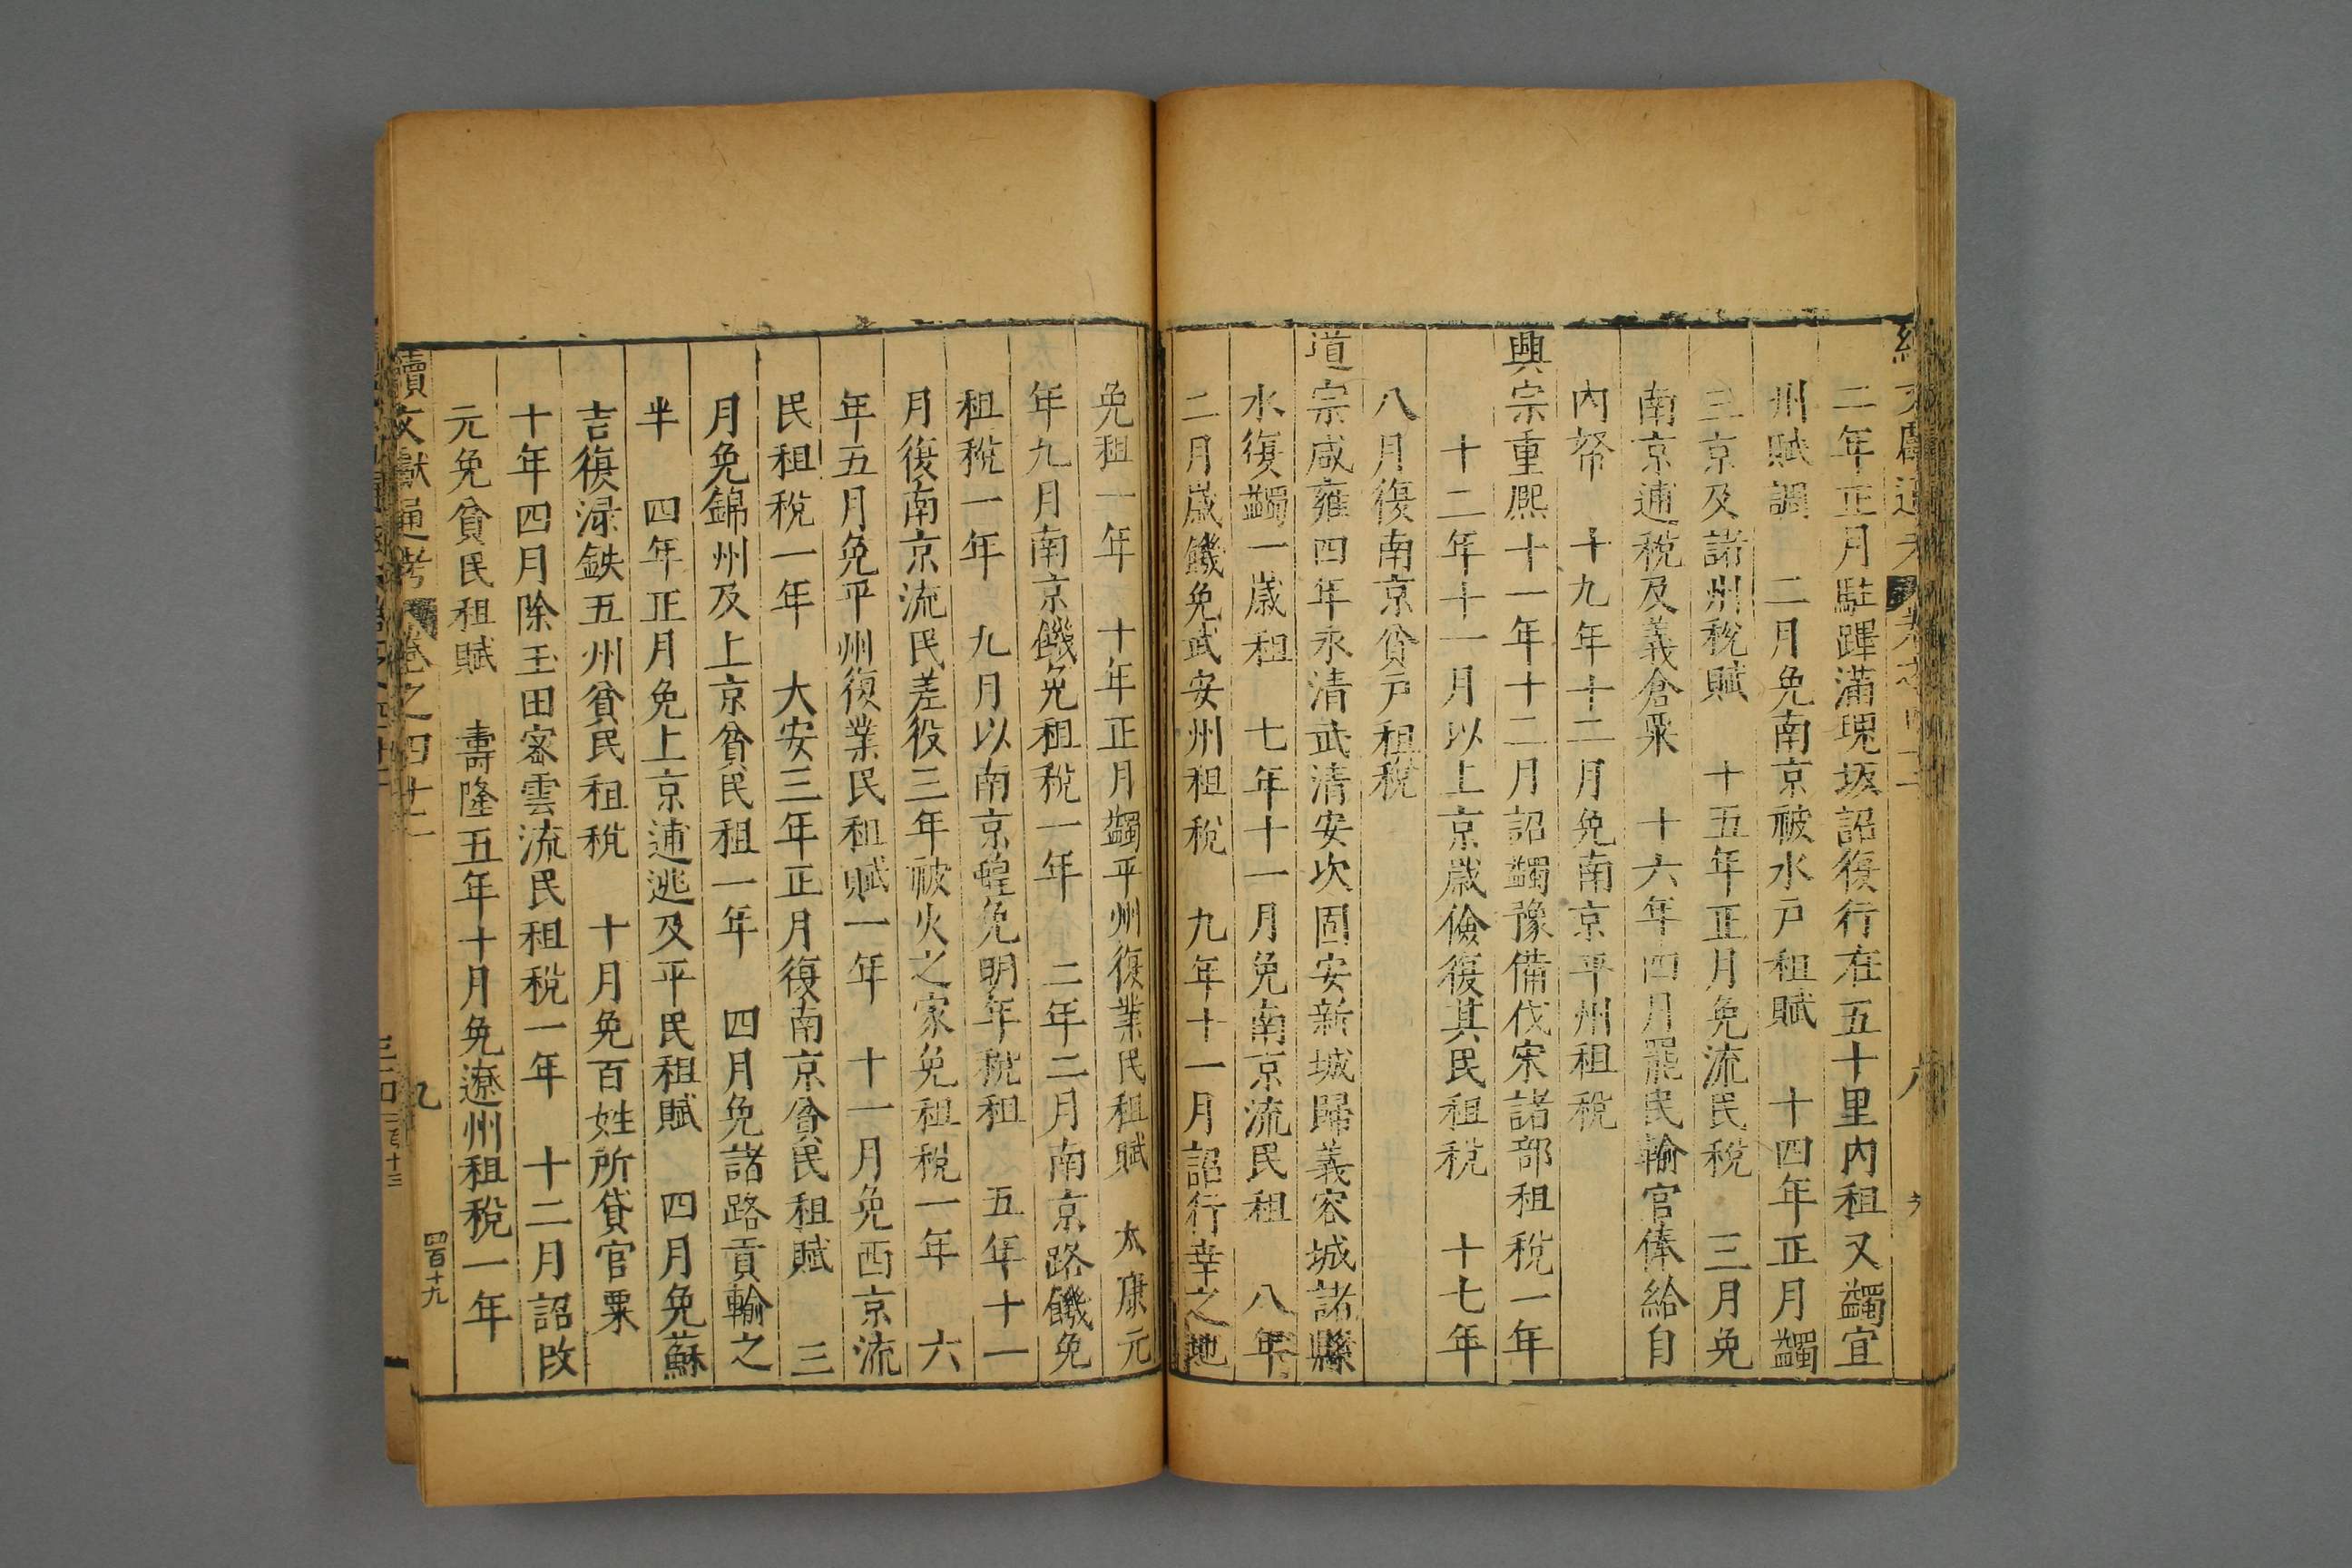 二年正月駐蹕滿瑰坂詔復行在五十里内租又蠲宜
州賦調 二月免南京被水戸租賦 十四年正月蠲
三京及諸州稅賦 十五年正月免流民稅 三月免
南京逋稅及義倉粟 十六年四月罷民輸官俸給自
内帑 十九年十二月免南京平州租稅
興宗重熈十一年十二月詔蠲豫備伐宋諸部租稅一年
十二年十一月以上京歲儉復其民租稅 十七年
八月復南京貧戸租稅
道宗咸雍四年永清武清安次固安新城歸義容城諸縣
水復蠲一歲租 七年十一月免南京流民租 八年
二月歲饑免武安州租稅 九年十一月詔行幸之地
免租一年 十年正月蠲平州復業民租賦 太康元
年九月南京饑免租稅一年 二年二月南京路饑免
租稅一年 九月以南京蝗免明年稅租 五年十一
月復南京流民差役三年被火之家免租稅一年 六
年五月免平州復業民租賦一年 十一月免西京流
民租稅一年 大安三年正月復南京貧民租賦 三
月免錦州及上京貧民租一年 四月免諸路貢輸之
半 四年正月免上京逋逃及平民租賦 四月免蘇
吉復淥鉄五州貧民租稅 十月免百姓所貸官粟
十年四月除玉田密雲流民租稅一年 十二月詔改
元免貧民租賦 壽隆五年十月免遼州租稅一年
續文獻通考 卷之四十二 九 四百十九